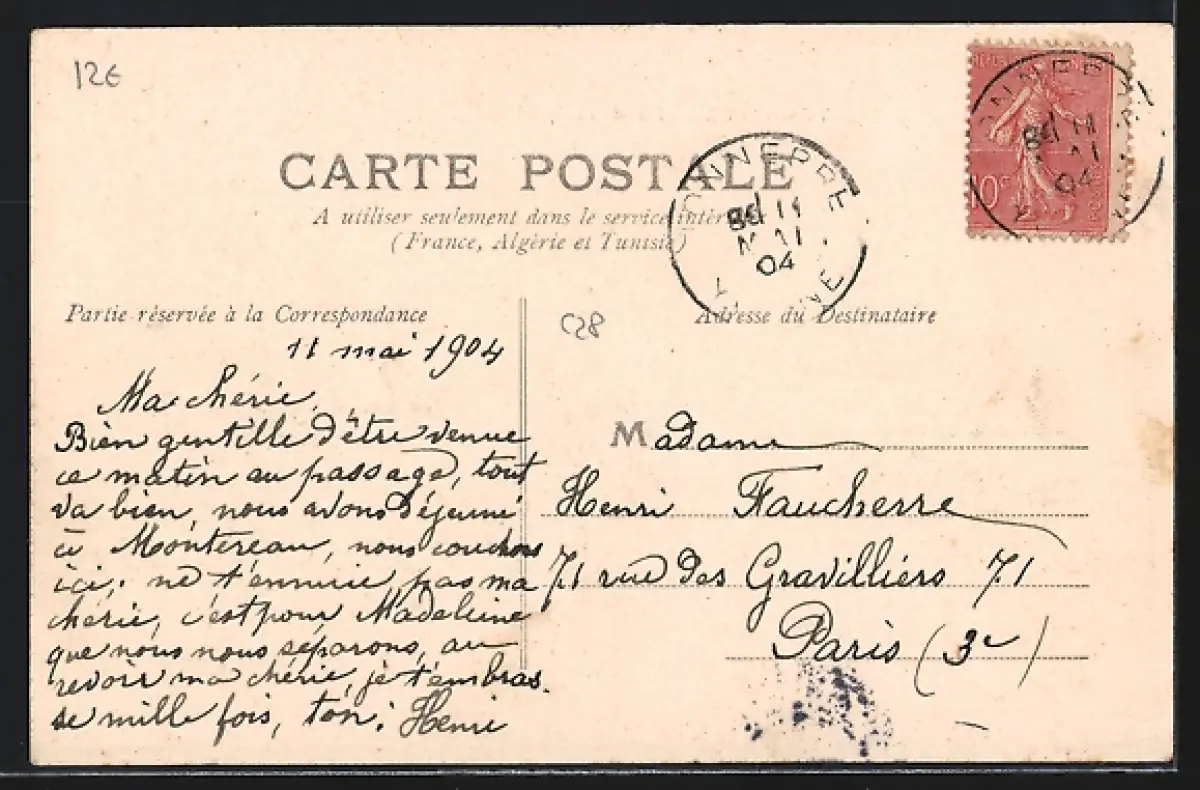 12€
CARTE POSTALE
A utiliser seulement dans le service intérieur
(France, Algérie et Tunisie)
TONNERRE
11
MAI
04
YONNE
TONNERRE
11
MAI
04
10c
Partie réservée à la Correspondance
C28
Adresse du Destinataire
11 mai 1904
Ma chérie
Bien gentille d'être venue
ce matin au passage, tout
va bien, nous avons déjeuné
à Montereau, nous couchons
ici; ne t'ennuie pas ma
chérie, c'est pour Madeleine
que nous nous séparons, au
revoir ma chérie, je t'embras.
se mille fois, ton: Henri
Madame
Henri Faucherre
71 rue des Gravilliers 71
Paris (3e)